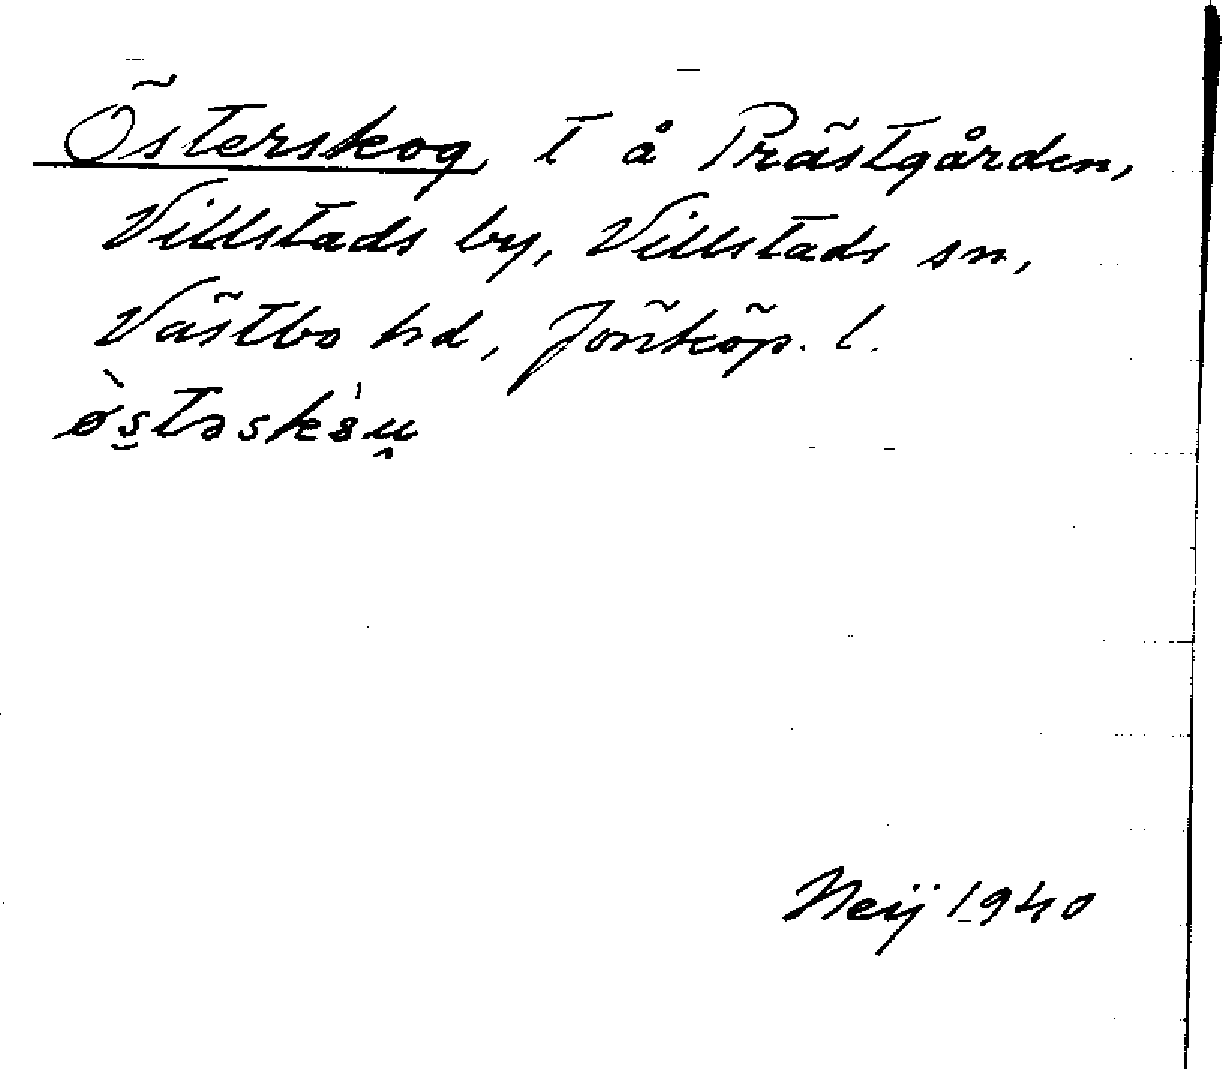 Österskog, t å Prästgården,
Villstads by, Villstads sn,
Västbo hd, Jönköp. l.
Neij 1940